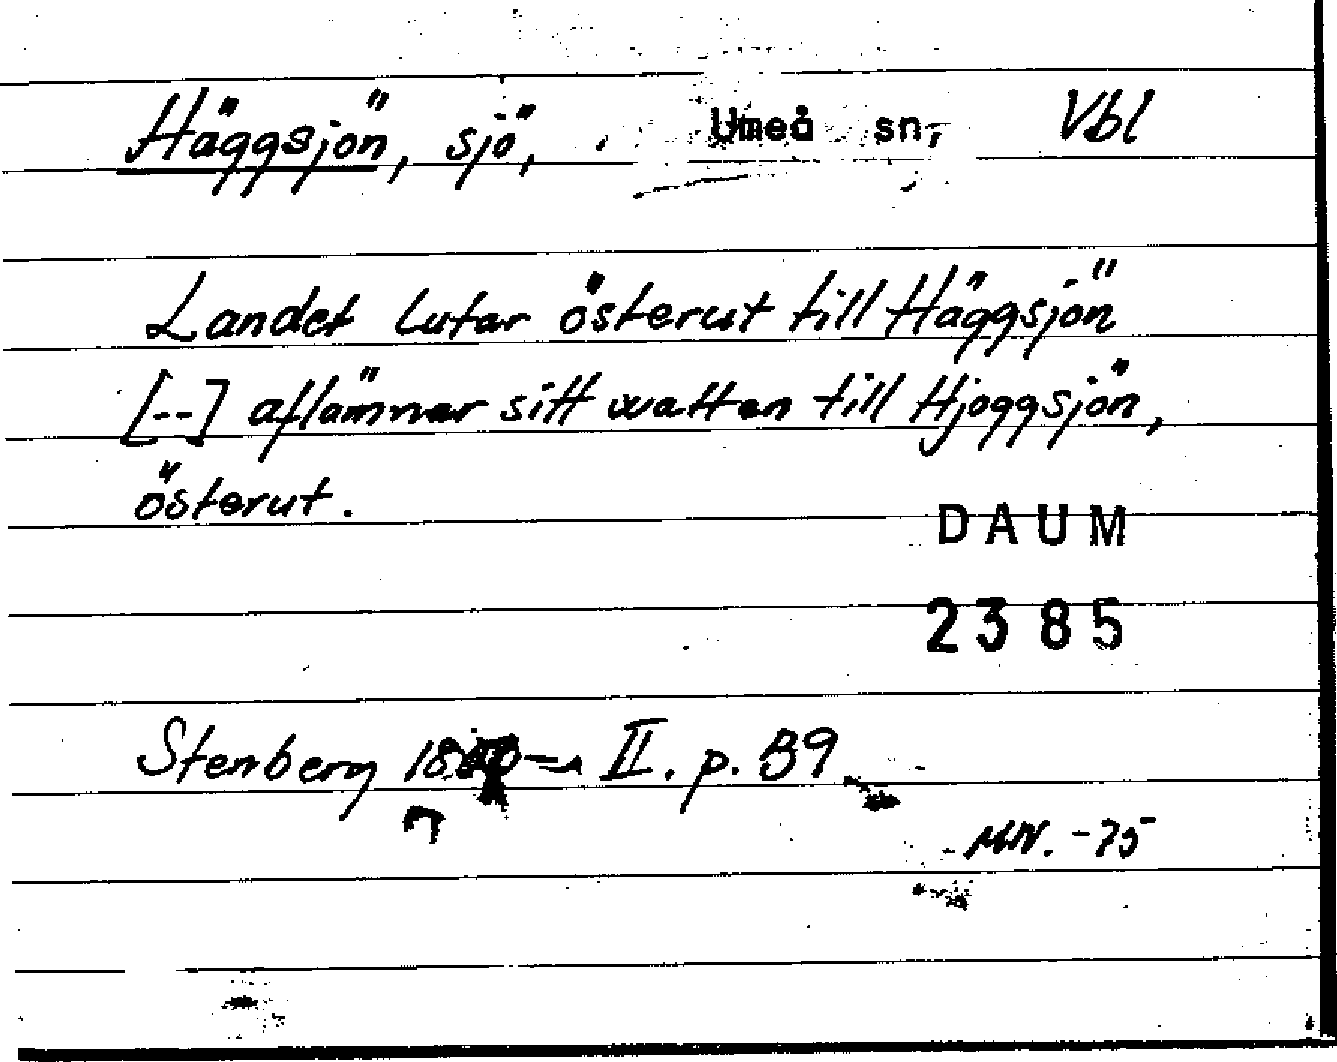 Häggsjön, sjö, Umeå sn, Vbl
Landet lutar österut till Häggsjön
[--] aflämnar sitt watten till Hjoggsjön,
österut.
DAUM
2385
Stenberg II. p. 39
MN. -75